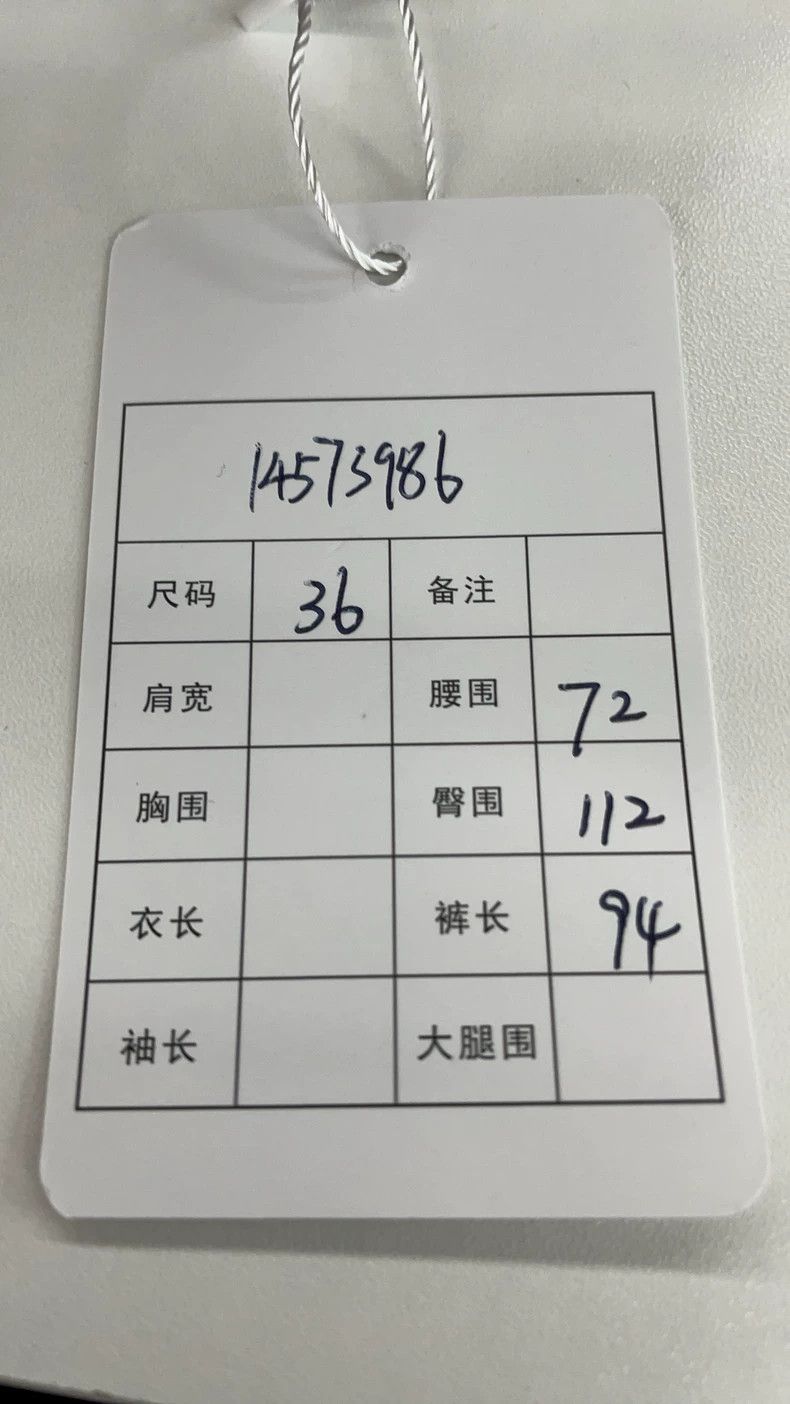 14573986
尺码 36 备注
肩宽 腰围 72
胸围 臀围 112
衣长 裤长 94
袖长 大腿围